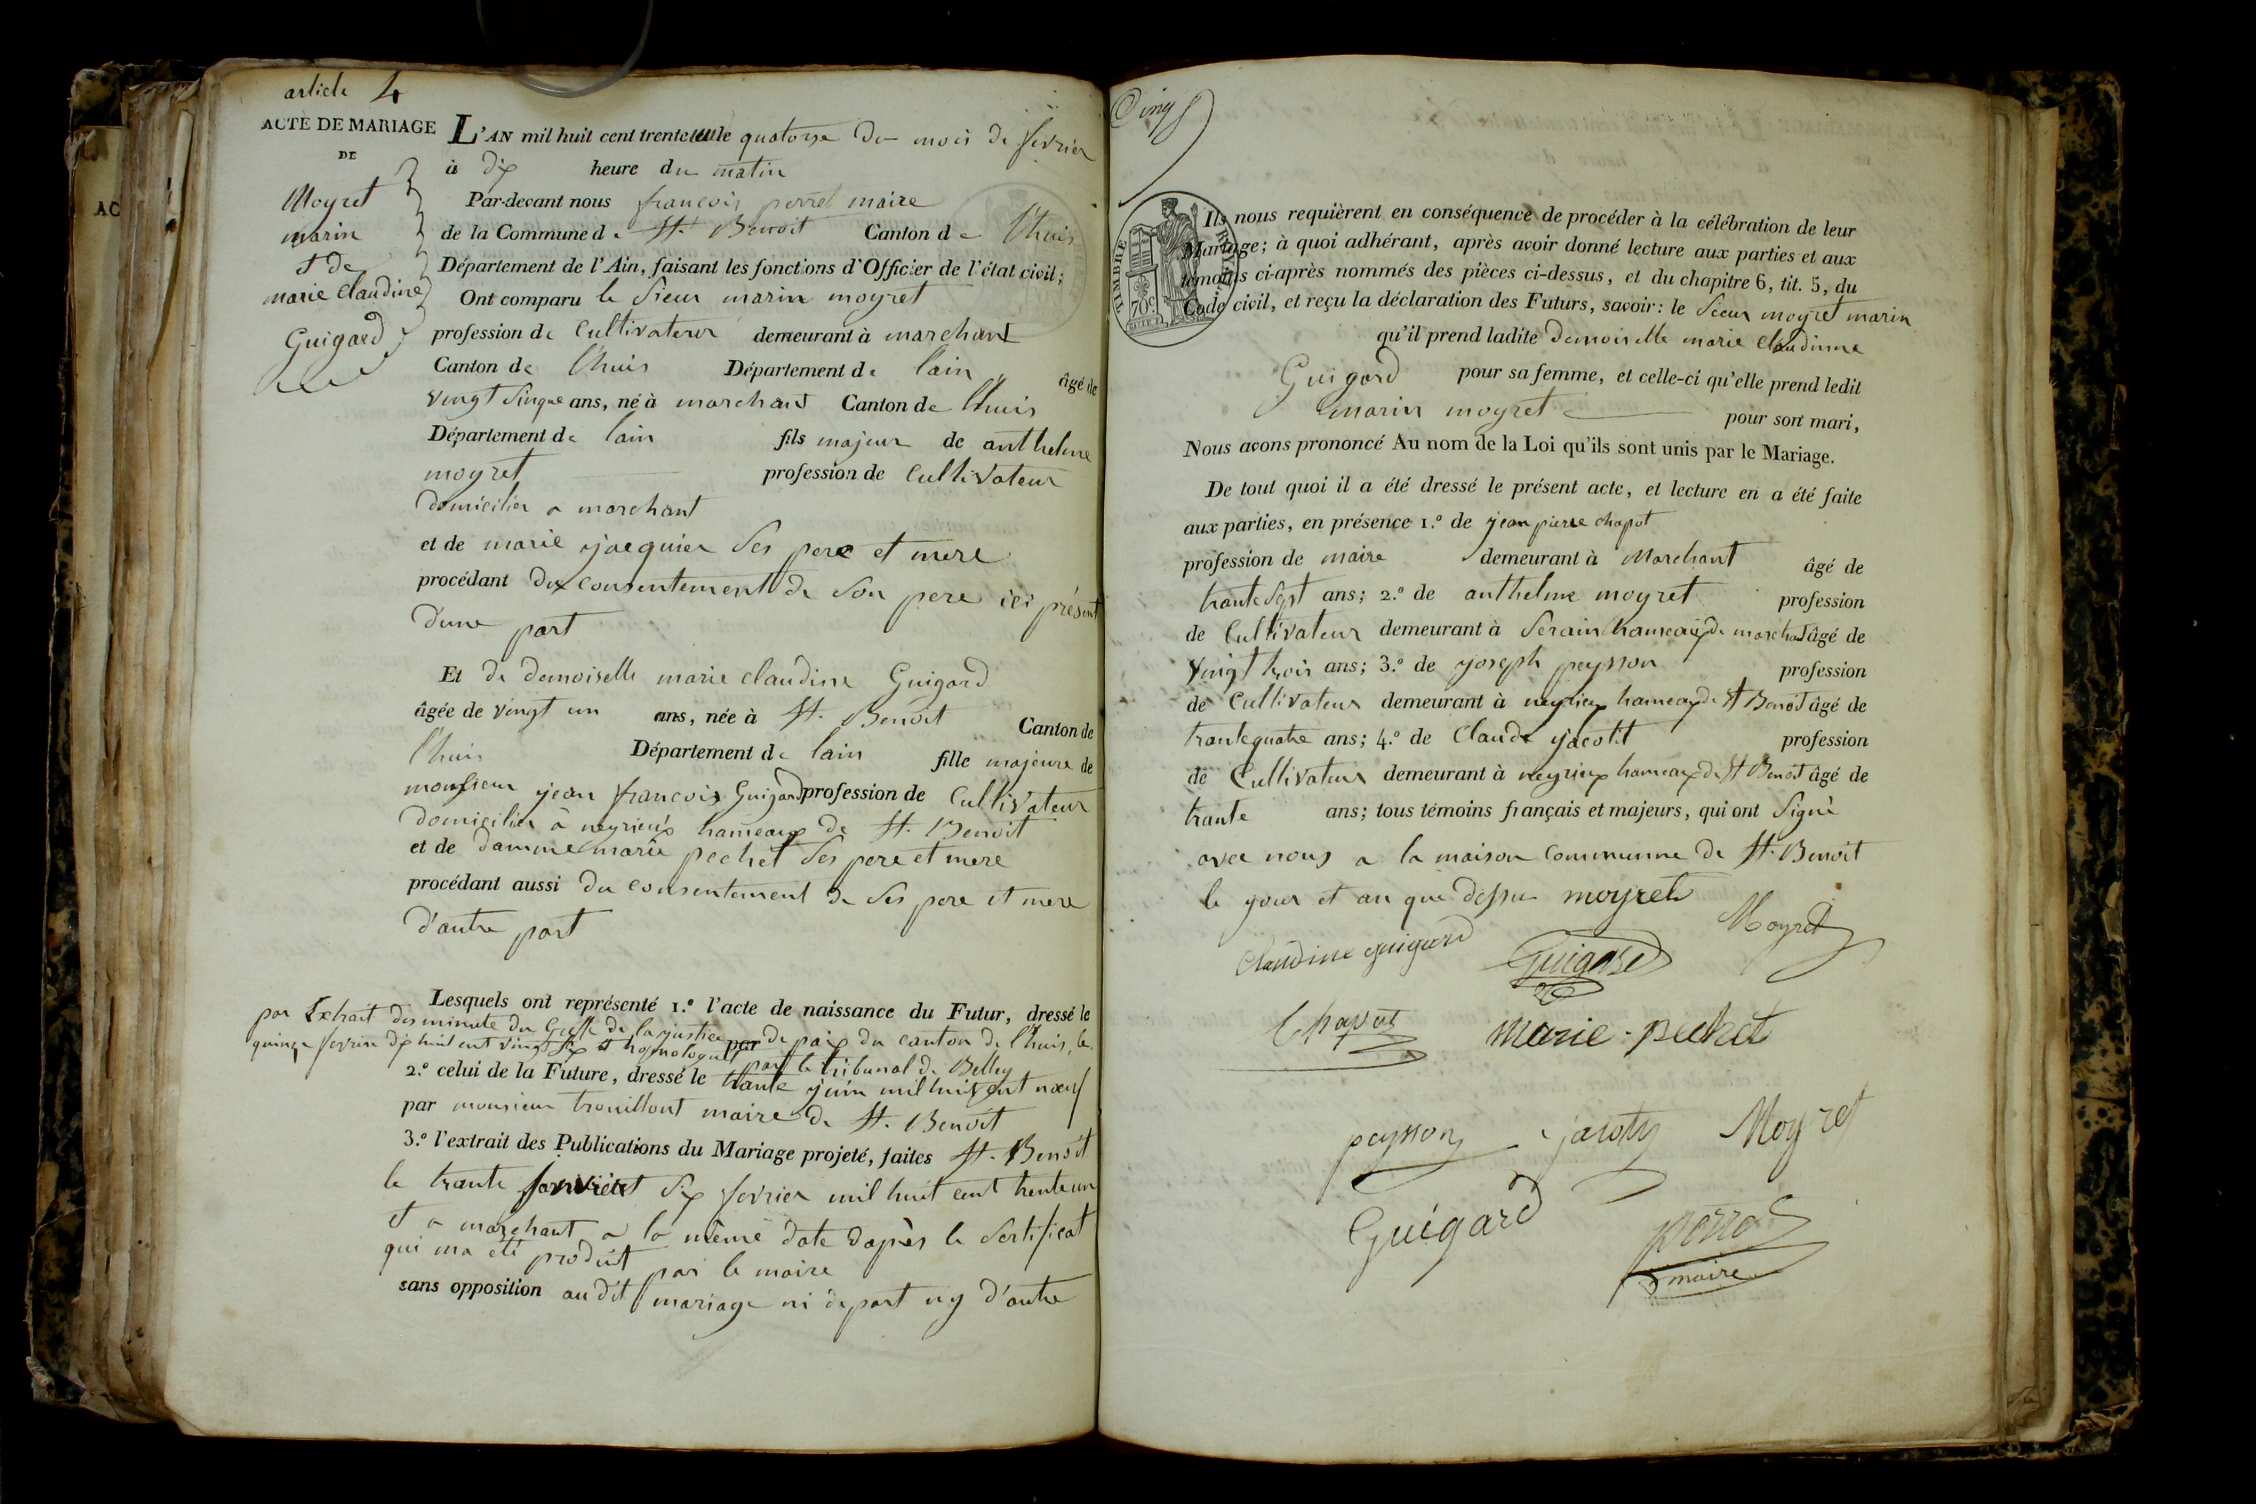 article 4
ACTE DE MARIAGE
DE
Moyret
marin
et de
marie Claudine
Guigard
L'AN mil huit cent trente un le quatorze du mois de fevrier
à dix heure du matin
Par-devant nous françois perret maire
de la Commune de St. Benoit Canton de l'huis
Département de l'Ain, faisant les fonctions d'Officier de l'état civil;
Ont comparu le Sieur marin moyret
profession de Cultivateur demeurant à marchant
Canton de l'huis Département de lain âgé de
vingt Sinque ans, né à marchant Canton de l'huis
Département de lain fils majeur de anthelme
moyret profession de Cultivateur
Domicilier a marchant
et de marie jacquier Ses pere et mere
procédant du consentement de Son pere ici présent
D'une part
Et de demoiselle marie claudine Guigard
âgée de vingt un ans, née à St. Benoit Canton de
l'huis Département de lain fille majeure de
monsieur jean françois Guigard profession de Cultivateur
Domicilier à neyrieux hameaux de St. Benoit
et de damme marie pechet Ses pere et mere
procédant aussi du consentement de Ses pere et mere
D'autre part
Lesquels ont représenté 1.º l'acte de naissance du Futur, dressé le
par Extrait des minute du Greffe de la justice par de paix du canton de l'huis, le
quinze fevrier dix huit cent vingt six et homologué par le tribunal de Belley
2.º celui de la Future, dressé le trante juin mil huit cent nœuf
par monsieur trouillout maire de St. Benoit
3.º l'extrait des Publications du Mariage projeté, faites St. Benoit
le trante janvier et Six fevrier mil huit cent trente un
et a marchant a la même date dapres le Sertificat
qui ma été produit par le maire
sans opposition au dit mariage ni de part ny d'autre
Cinq
TIMBRE ROYAL
70c
Ils nous requièrent en conséquence de procéder à la célébration de leur
Mariage; à quoi adhérant, après avoir donné lecture aux parties et aux
témoins ci-après nommés des pièces ci-dessus, et du chapitre 6, tit. 5, du
Code civil, et reçu la déclaration des Futurs, savoir: le Sieur moyret marin
qu'il prend ladite Demoiselle marie Claudinne
Guigard pour sa femme, et celle-ci qu'elle prend ledit
marin moyret pour son mari,
Nous avons prononcé Au nom de la Loi qu'ils sont unis par le Mariage.
De tout quoi il a été dressé le présent acte, et lecture en a été faite
aux parties, en présence 1.º de jean pierre chapot
profession de maire demeurant à Marchant âgé de
trante Sept ans; 2.º de anthelme moyret profession
de Cultivateur demeurant à Serain hameaux de marchant âgé de
vingt trois ans; 3.º de joseph peysson profession
de Cultivateur demeurant à neyrieux hameaux de St Benoit âgé de
trante quatre ans; 4.º de Claude jacotit profession
de Cultivateur demeurant à neyrieux hameaux de St Benoit âgé de
trante ans; tous témoins français et majeurs, qui ont Signé
avec nous a la maison communne de St. Benoit
le jour et an que dessu moyret
Moyret
Claudine guigard
Guigard
Chaput
marie pechet
peysson jacoty Moyret
Guigard
perret
maire